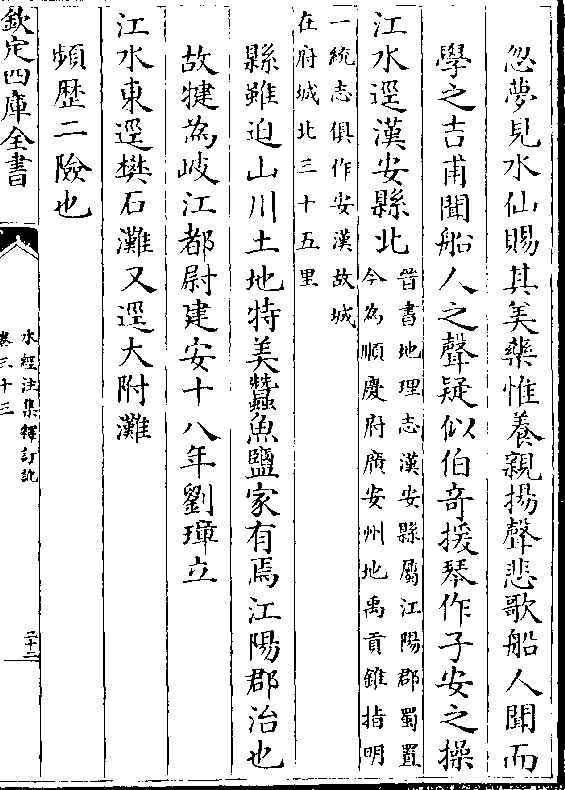 忽夢見水仙賜其美藥惟養親揚聲悲歌船人聞而
學之吉甫聞船人之聲疑似伯奇援琴作子安之操
江水逕漢安縣北
晉書地理志漢安縣屬江陽郡蜀置
今為順慶府廣安州地禹貢錐指明
一統志俱作安漢故城
在府城北三十五里
縣雖迫山川土地特美蠶魚鹽家有焉江陽郡治也
故犍為岐江都尉建安十八年劉璋立
江水東逕樊石灘又逕大附灘
頻歴二險也
欽定四庫全書
水經注集釋訂訛
卷三十三
二十二